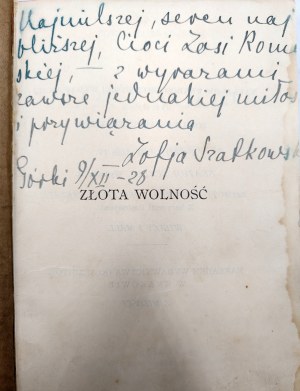 Najmilszej, sercu naj
bliższej, Cioci Zosi Rom
skiej, — z wyrazami
zawsze jednakiej miłoś
i przywiązania
Zofja Szatkowsk
Górki 9/XII – 28
ZŁOTA WOLNOŚĆ